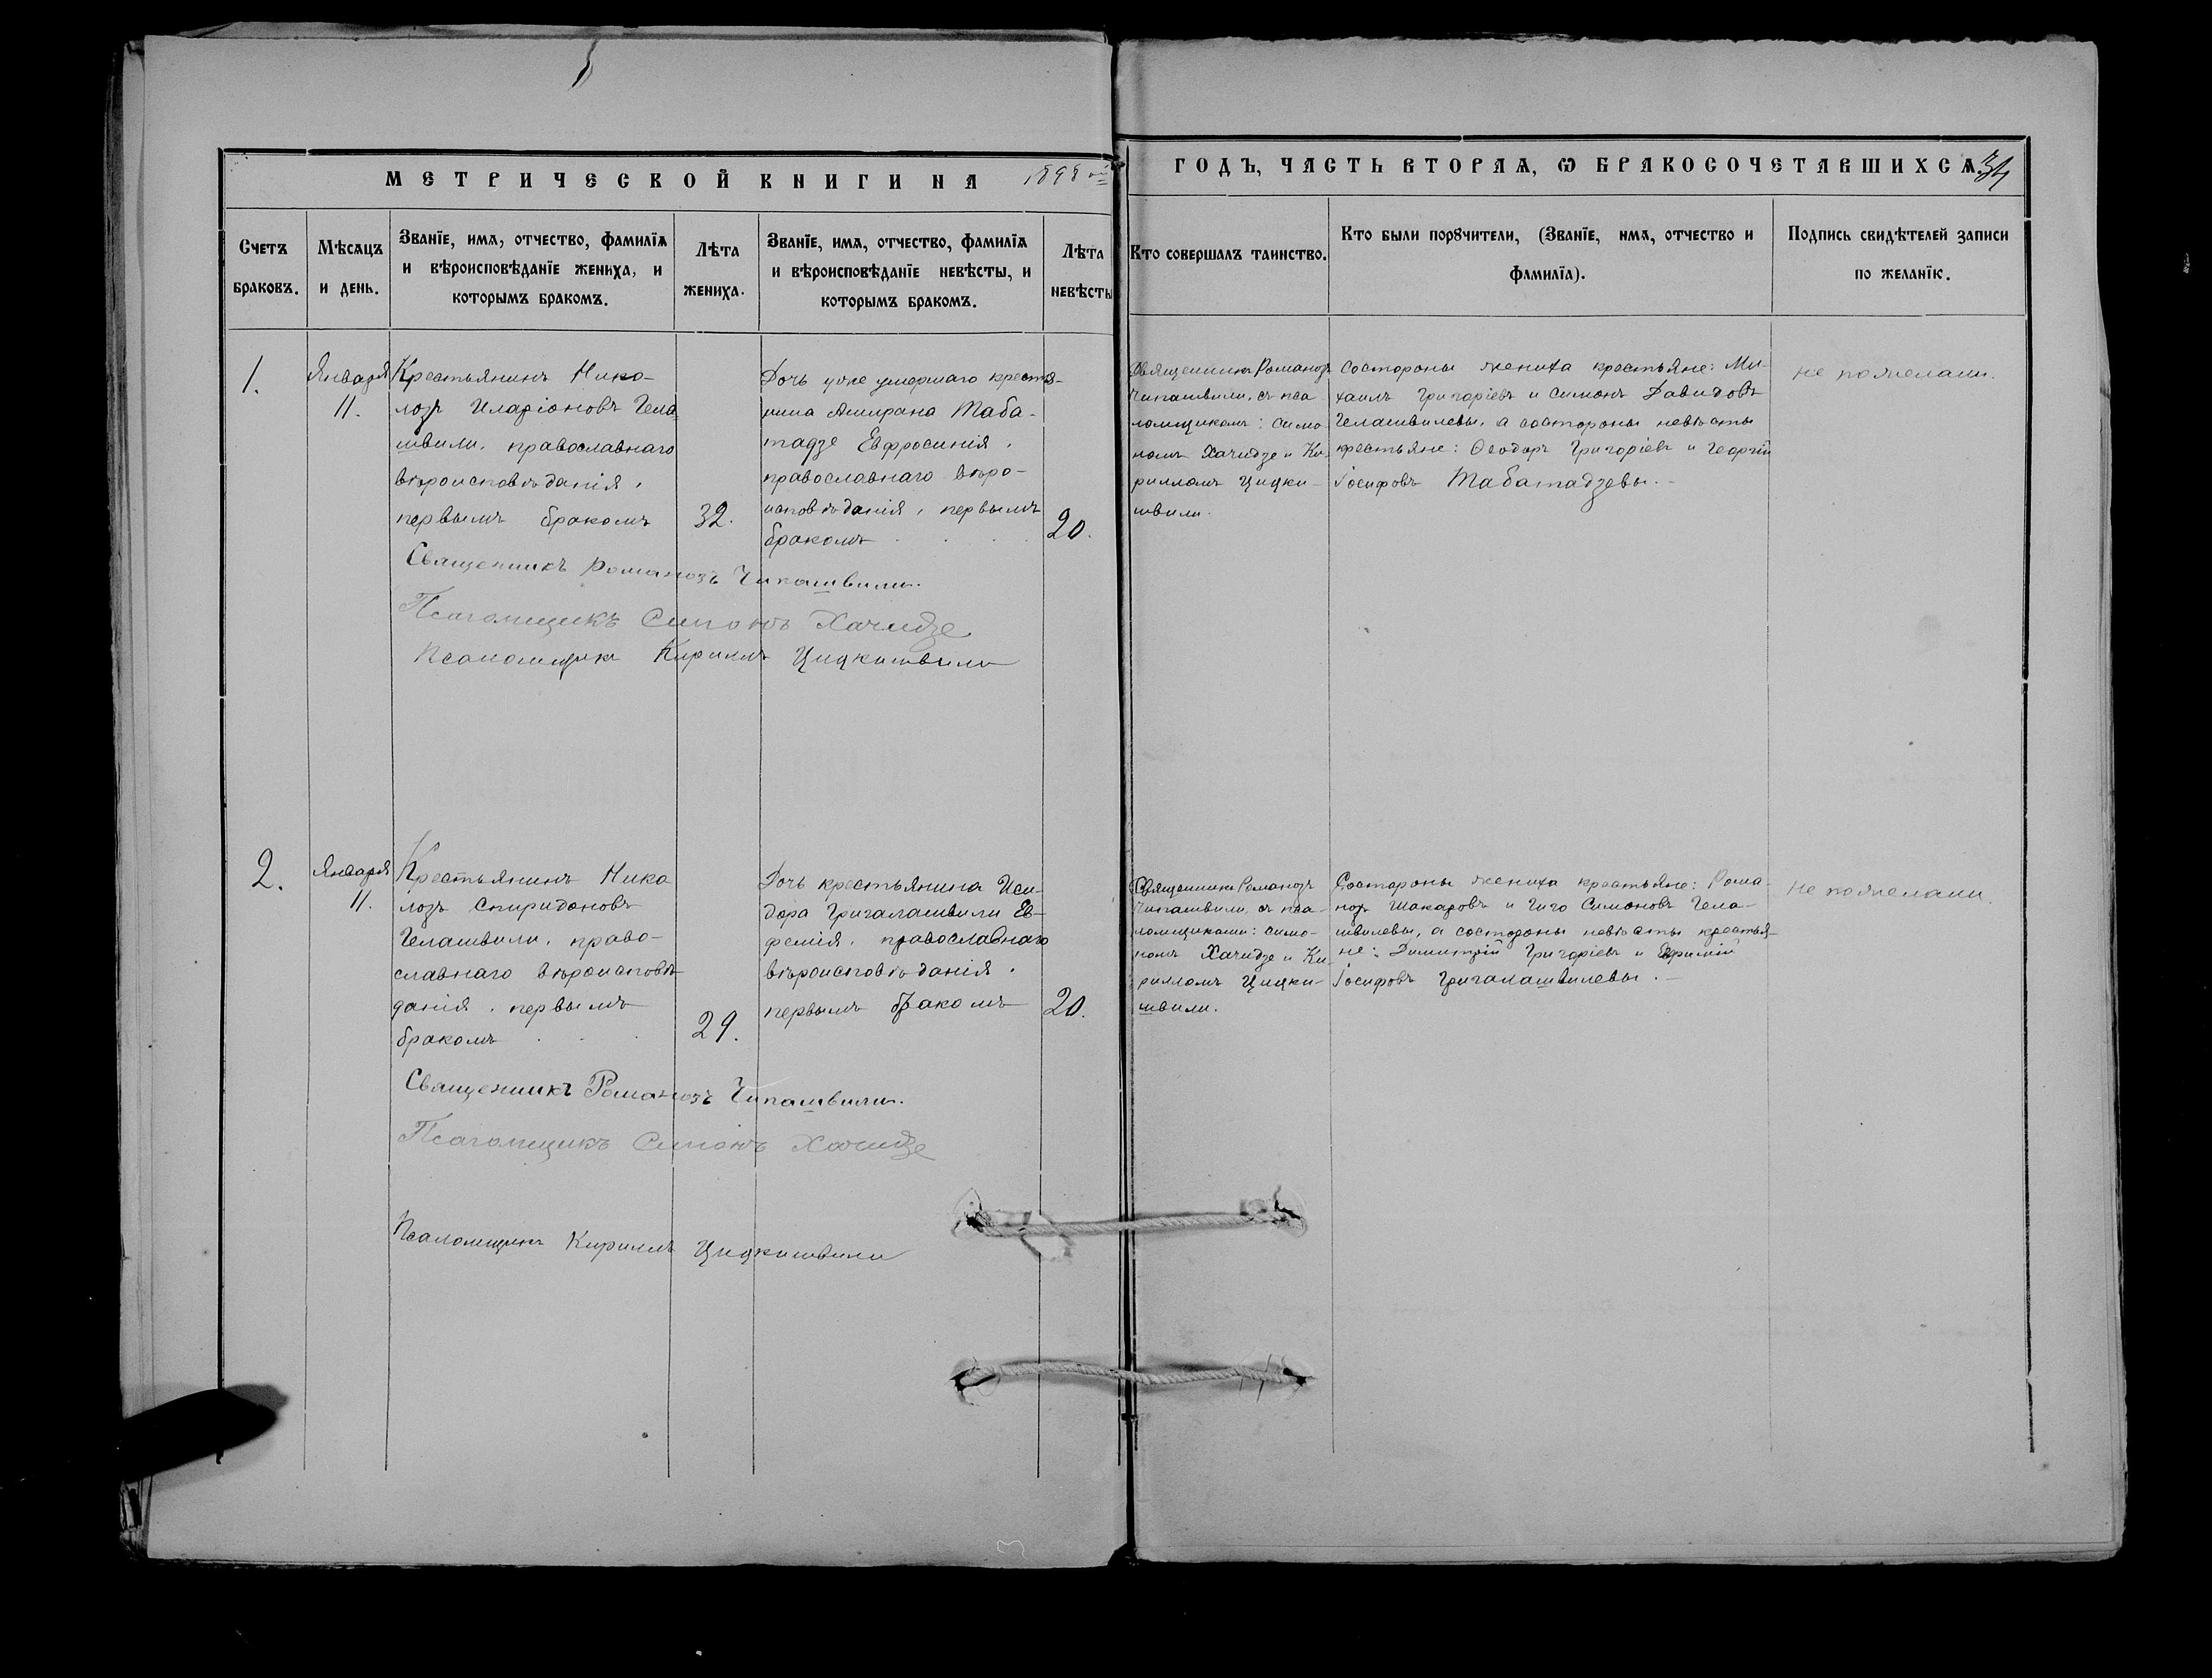 МЕТРИЧЕСКОЙ КНИГИ НА 1898
ГОДЪ, ЧАСТЬ ВТОРАѦ, Ѡ БРАКОСОЧЕТАВШИХСѦ.
Счетъ браковъ.
Мѣсѧцъ и день.
Званїе, имѧ, отчество, фамилїѧ
и вѣроисповѣданїе жениха, и
которымъ бракомъ.
Лѣта жениха.
Званїе, имѧ, отчество, фамилїѧ
и вѣроисповѣданїе невѣсты, и
которымъ бракомъ.
Лѣта невѣсты
Кто совершалъ таинство.
Кто были порꙋчители, (Званїе, имѧ, отчество и
фамилїа).
Подпись свидѣтелей записи
по желанїю.
1.
Января
11.
Крестьянинъ Нико-
лозъ Иларіоновъ Гела
швили, православнаго
вѣроисповѣданія,
первымъ бракомъ
32.
Дочь уже умершаго крестья-
нина Амирана Таба-
тадзе Евфросинія,
православнаго вѣро-
исповѣданія, первымъ
бракомъ
20.
Священникъ Романозъ
Чипашвили, съ пса-
ломщиком: Симо-
номъ Хачидзе и Ки-
рилломъ Цицки-
швили.
Состороны жениха крестьяне: Ми-
хаилъ Григоріевъ и Симонъ Давидовъ
Гелашвилевы, а состороны невѣсты
крестьяне: Ѳеодоръ Григоріевъ и Георгій
Іосифовъ Табатадзевы.-
не пожелали.
Священникъ Романозъ Чипашвили.
Псаломщикъ Симонъ Хачидзе
Псаломщикъ Кириллъ Цицкишвили
2.
Января
11.
Крестьянинъ Нико
лозъ Спиридоновъ
Гелашвили, право-
славнаго вѣроисповѣ-
данія, первымъ
бракомъ
29.
Дочь крестьянина Иси-
дора Григалашвили Ев-
фемія, православнаго
вѣроисповѣданія,
первымъ бракомъ
20.
Священникъ Романозъ
Чипашвили, съ пса-
ломщиками: Симо-
номъ Хачидзе и Ки-
рилломъ Цицки-
швили.
Состороны жениха крестьяне: Рома-
нозъ Шакаровъ и Гиго Симоновъ Гела-
швилевы, а состороны невѣсты крестья-
не: Димитрій Григоріевъ и Ефримій
Іосифовъ Григалашвилевы.-
не пожелали.
Священникъ Романозъ Чипашвили.
Псаломщикъ Симонъ Хачидзе
Псаломщикъ Кириллъ Цицкишвили